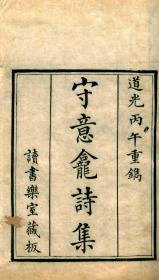 道光丙午重鐫
守意龕詩集
讀書樂室藏板